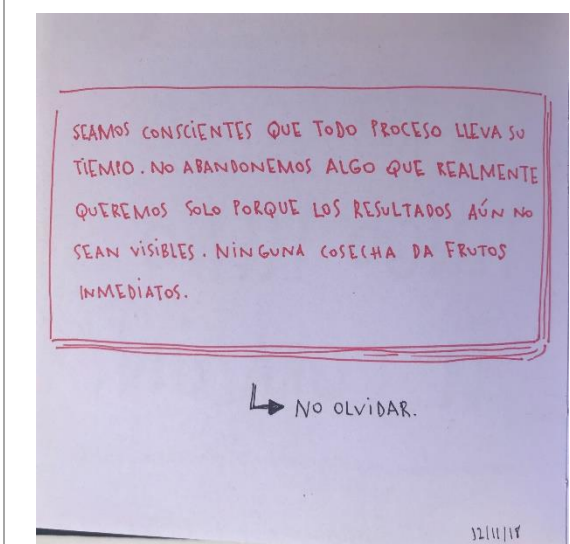 SEAMOS CONSCIENTES QUE TODO PROCESO LLEVA SU
TIEMPO. NO ABANDONEMOS ALGO QUE REALMENTE
QUEREMOS SOLO PORQUE LOS RESULTADOS AÚN NO
SEAN VISIBLES. NINGUNA COSECHA DA FRUTOS
INMEDIATOS.
↳ NO OLVIDAR.
12/11/18